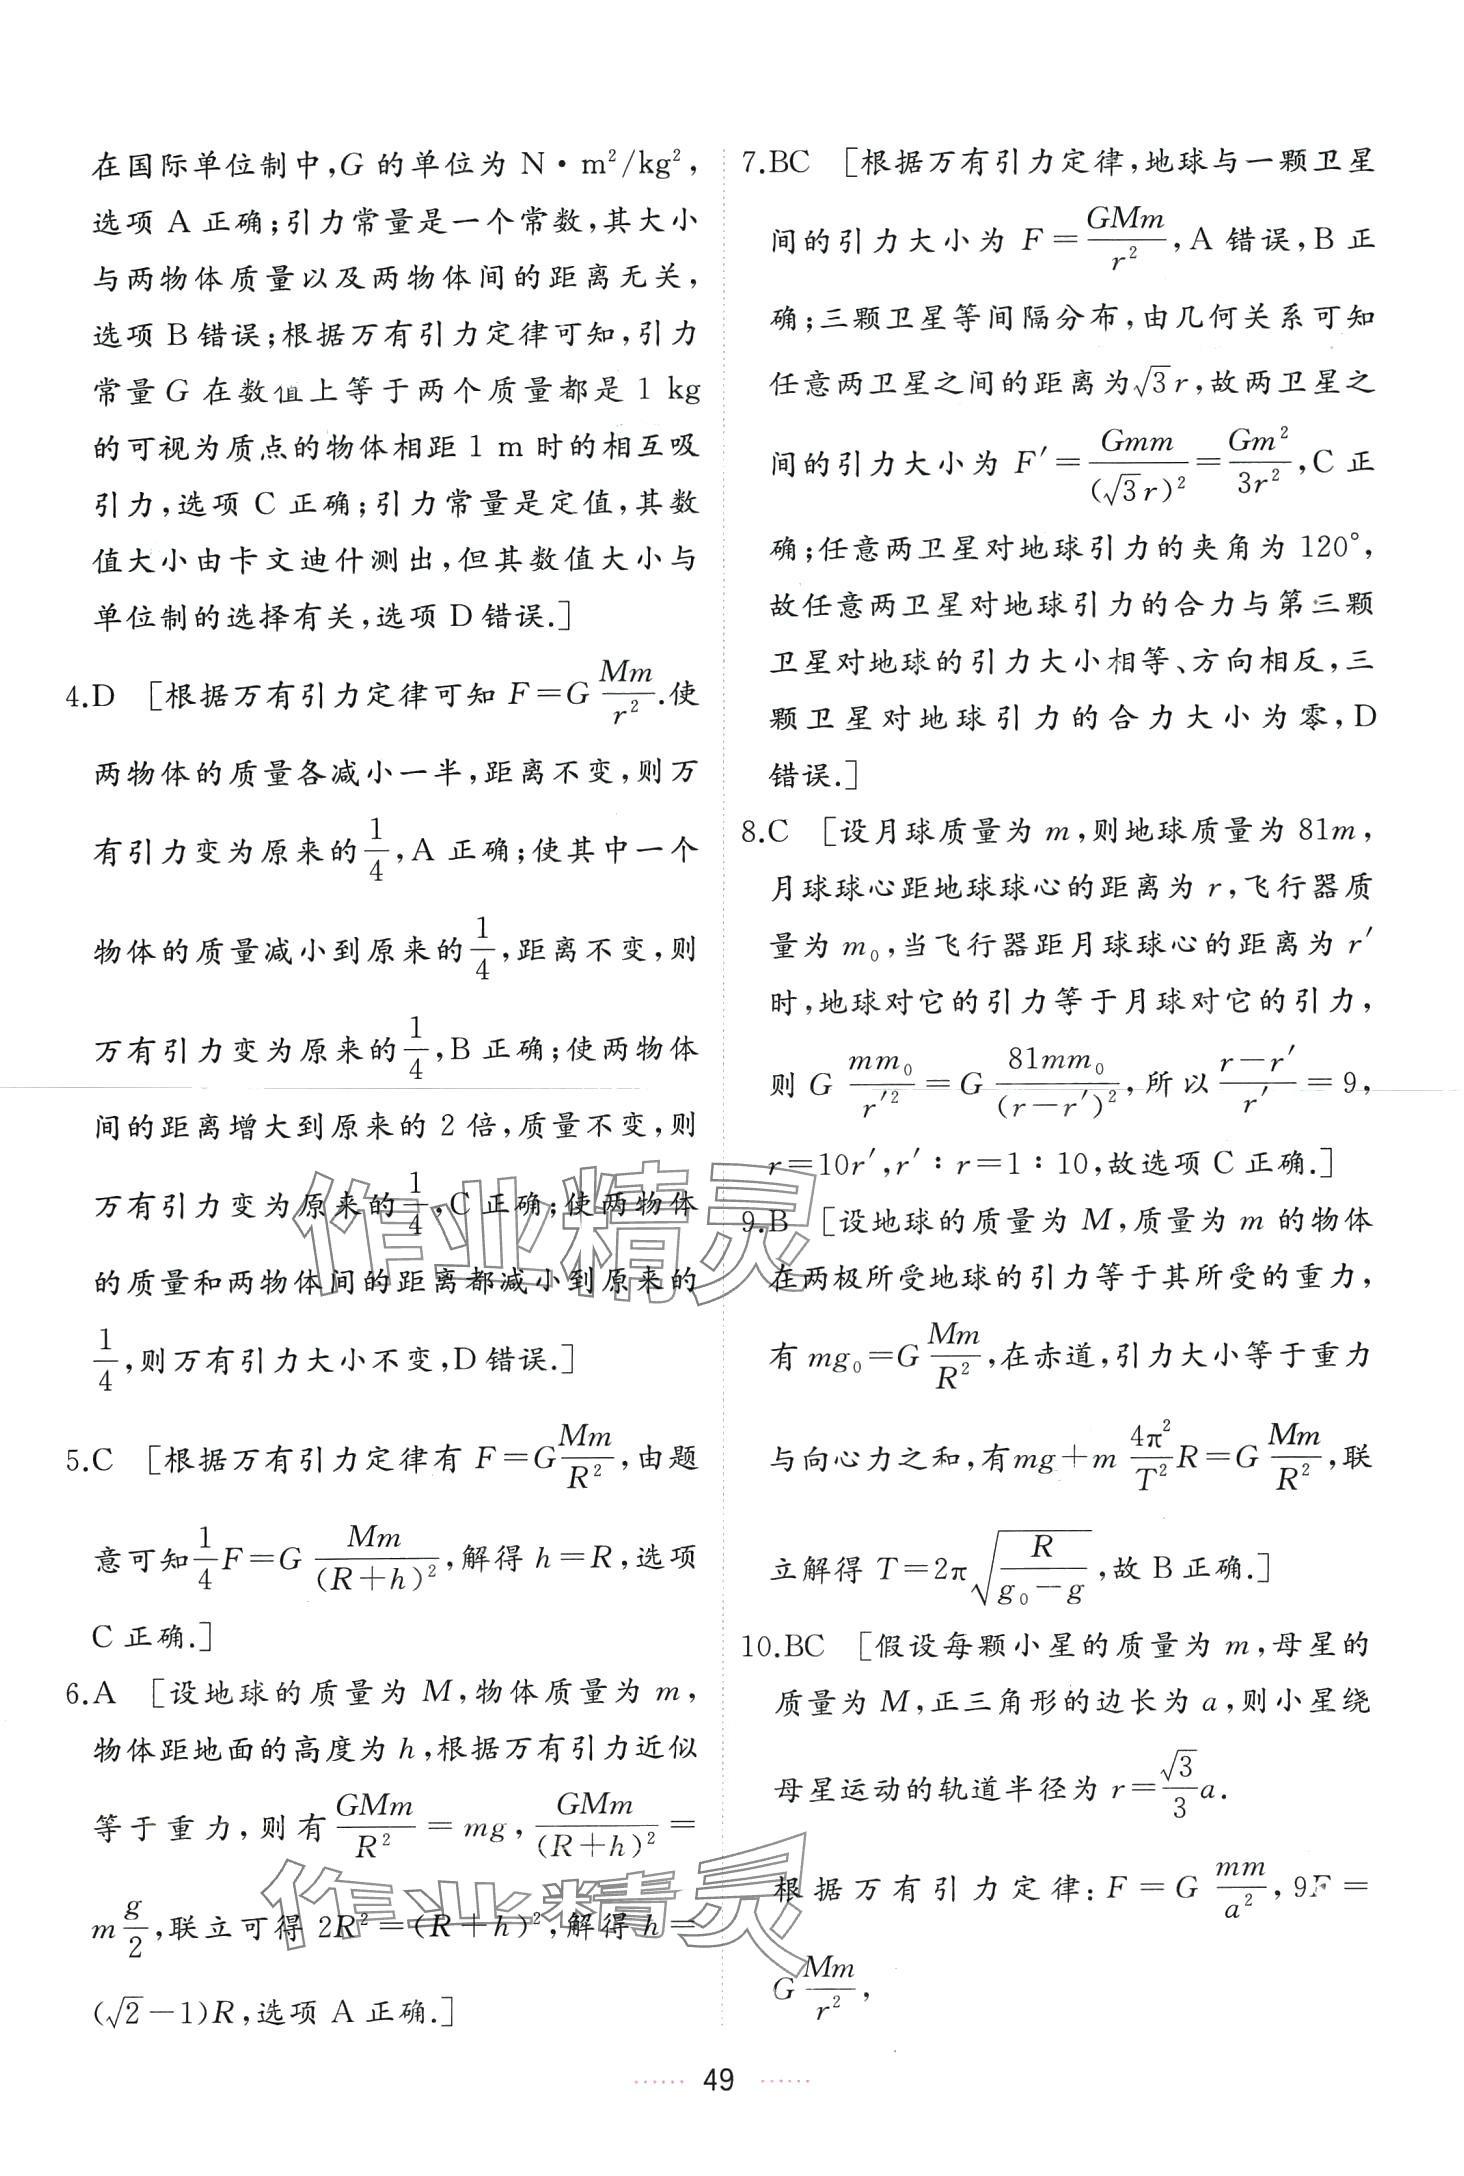 在国际单位制中,G 的单位为 N·m²/kg²,
选项 A 正确;引力常量是一个常数,其大小
与两物体质量以及两物体间的距离无关,
选项 B 错误;根据万有引力定律可知,引力
常量 G 在数值上等于两个质量都是 1 kg
的可视为质点的物体相距 1 m 时的相互吸
引力,选项 C 正确;引力常量是定值,其数
值大小由卡文迪什测出,但其数值大小与
单位制的选择有关,选项 D 错误.]
4.D [根据万有引力定律可知 F=G Mm/r².使
两物体的质量各减小一半,距离不变,则万
有引力变为原来的1/4,A 正确;使其中一个
物体的质量减小到原来的1/4,距离不变,则
万有引力变为原来的1/4,B 正确;使两物体
间的距离增大到原来的 2 倍,质量不变,则
万有引力变为原来的1/4,C 正确;使两物体
的质量和两物体间的距离都减小到原来的
1/4,则万有引力大小不变,D 错误.]
5.C [根据万有引力定律有 F=G Mm/R²,由题
意可知1/4F=G Mm/(R+h)²,解得 h=R,选项
C 正确.]
6.A [设地球的质量为 M,物体质量为 m,
物体距地面的高度为 h,根据万有引力近似
等于重力,则有 GMm/R²=mg,GMm/(R+h)²=
m g/2,联立可得 2R²=(R+h)²,解得 h=
(√2-1)R,选项 A 正确.]
7.BC [根据万有引力定律,地球与一颗卫星
间的引力大小为 F=GMm/r²,A 错误,B 正
确;三颗卫星等间隔分布,由几何关系可知
任意两卫星之间的距离为√3r,故两卫星之
间的引力大小为 F′=Gmm/(√3r)²=Gm²/3r²,C 正
确;任意两卫星对地球引力的夹角为 120°,
故任意两卫星对地球引力的合力与第三颗
卫星对地球的引力大小相等、方向相反,三
颗卫星对地球引力的合力大小为零,D
错误.]
8.C [设月球质量为 m,则地球质量为 81m,
月球球心距地球球心的距离为 r,飞行器质
量为 m₀,当飞行器距月球球心的距离为 r′
时,地球对它的引力等于月球对它的引力,
则 G mm₀/r′²=G 81mm₀/(r-r′)²,所以(r-r′)/r′=9,
r=10r′,r′∶r=1∶10,故选项 C 正确.]
9.B [设地球的质量为 M,质量为 m 的物体
在两极所受地球的引力等于其所受的重力,
有 mg₀=G Mm/R²,在赤道,引力大小等于重力
与向心力之和,有mg+m 4π²/T² R=G Mm/R²,联
立解得 T=2π√(R/(g₀-g)),故 B 正确.]
10.BC [假设每颗小星的质量为 m,母星的
质量为 M,正三角形的边长为 a,则小星绕
母星运动的轨道半径为 r=√3/3 a.
根据万有引力定律:F=G mm/a²,9F=
G Mm/r²,
49
作业精灵
作业精灵